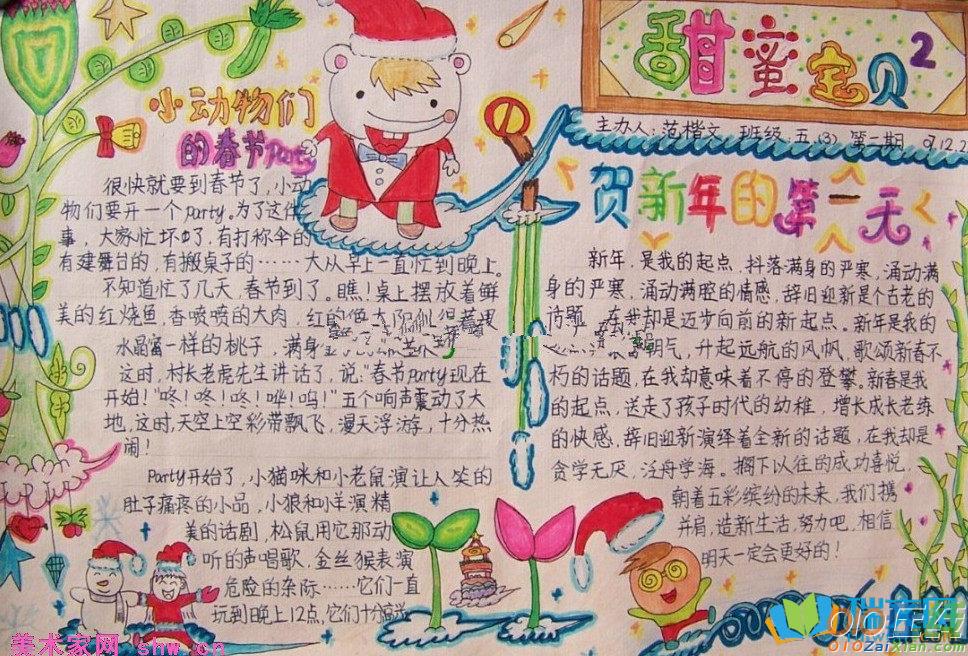 甜蜜宝贝2
主办人:范楷文 班级:五(3) 第二期 07.12.2
小动物们
的春节Party
很快就要到春节了,小动
物们要开一个party。为了这件
事,大家忙坏了,有打称伞的
有建舞台的,有搬桌子的……大从早上一直忙到晚上。
不知道忙了几天,春节到了。瞧!桌上摆放着鲜
美的红烧鱼 香喷喷的大肉,红的
水晶一样的桃子,满身
这时,村长老虎先生讲话了,说:"春节party现在
开始!"咚!咚!咚!哗!呜!"五个响声震动了大
地,这时,天空上空彩带飘飞,漫天浮游,十分热
闹!
Party开始了,小猫咪和小老鼠演让人笑的
肚子痛疼的小品,小狼和小羊演精
美的话剧,松鼠用它那动
听的声唱歌,金丝猴表演
危险的杂际……它们一直
玩到晚上12点,它们十份高兴
贺新年的第一天
新年,是我的起点,抖落满身的严寒,涌动满
身的严寒,涌动满腔的情感,辞旧迎新是个古老的
话题,在我却是迈步向前的新起点。新年是我的
明气,升起远航的风帆,歌颂新春不
朽的话题,在我却意味着不停的登攀。新春是我
的起点,送走了孩子时代的幼稚,增长成长老练
的快感,辞旧迎新演绎着全新的话题,在我却是
贪学无厌,泛舟学海。搁下以往的成功喜悦,
朝着五彩缤纷的未来,我们携
并肩,造新生活,努力吧,相信
明天一定会更好的!
美术家网 shw.cn
010ZaiXian.com